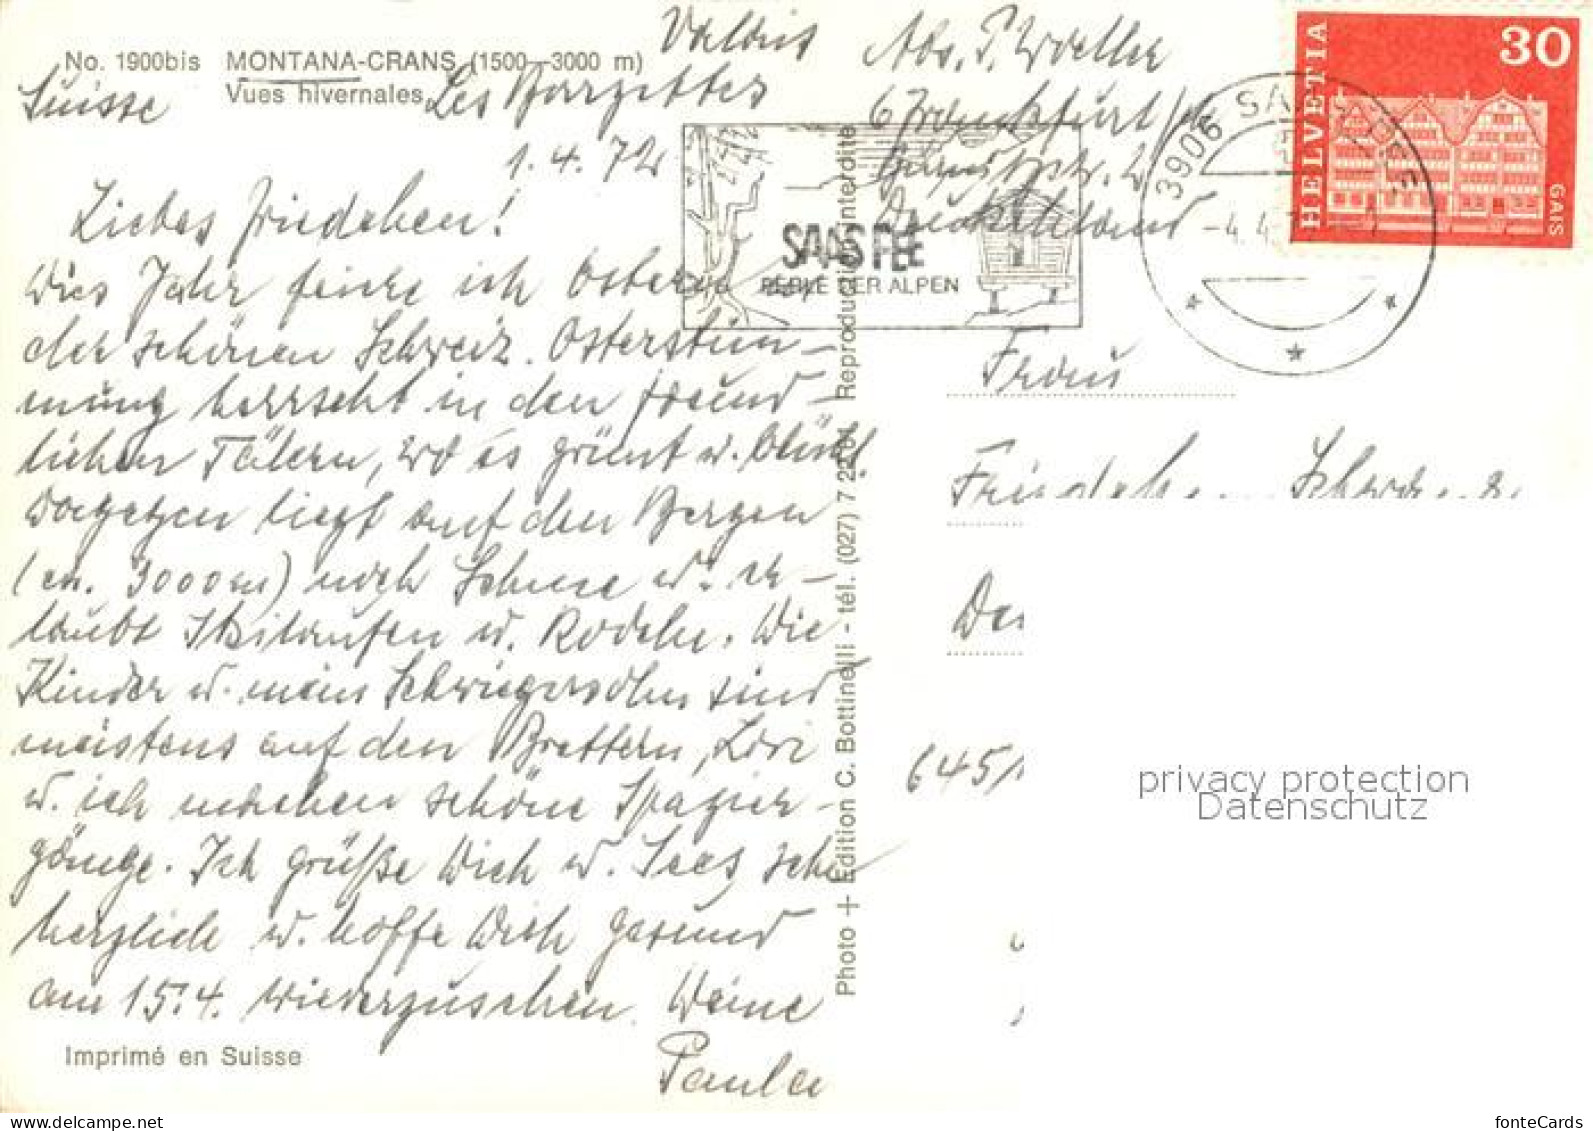 No. 1900bis MONTANA-CRANS (1500–3000 m)
Vues hivernales
Suisse Les Barzettes
1.4.72
Liebes Friedchen!
Dies Jahr feiere ich Ostern in
der schönen Schweiz. Osterstim-
mung herrscht in den freund-
lichen Tälern, wo es grünt u. blüht.
Dagegen liegt auf den Bergen
(ca. 3000 m) noch Schnee u. er-
laubt Skilaufen u. Rodeln. Die
Kinder u. mein Schwiegersohn sind
meistens auf den Brettern, Lori
u. ich machen schöne Spazier-
gänge. Ich grüße Dich u. Sees sehr
herzlich u. hoffe Dich gesund
am 15.4. wiederzusehen. Deine
Paula
Imprimé en Suisse
Photo + Edition C. Bottinelli - tél. (027) 7 Reproduction interdite
Abs. P. Woeller
6 Frankfurt/M
Deutschland
SAAS FEE
PERLE DER ALPEN
3906 SAAS-FEE
-4.4.
HELVETIA
30
GAIS
Frau
645/
privacy protection
Datenschutz
fonteCards